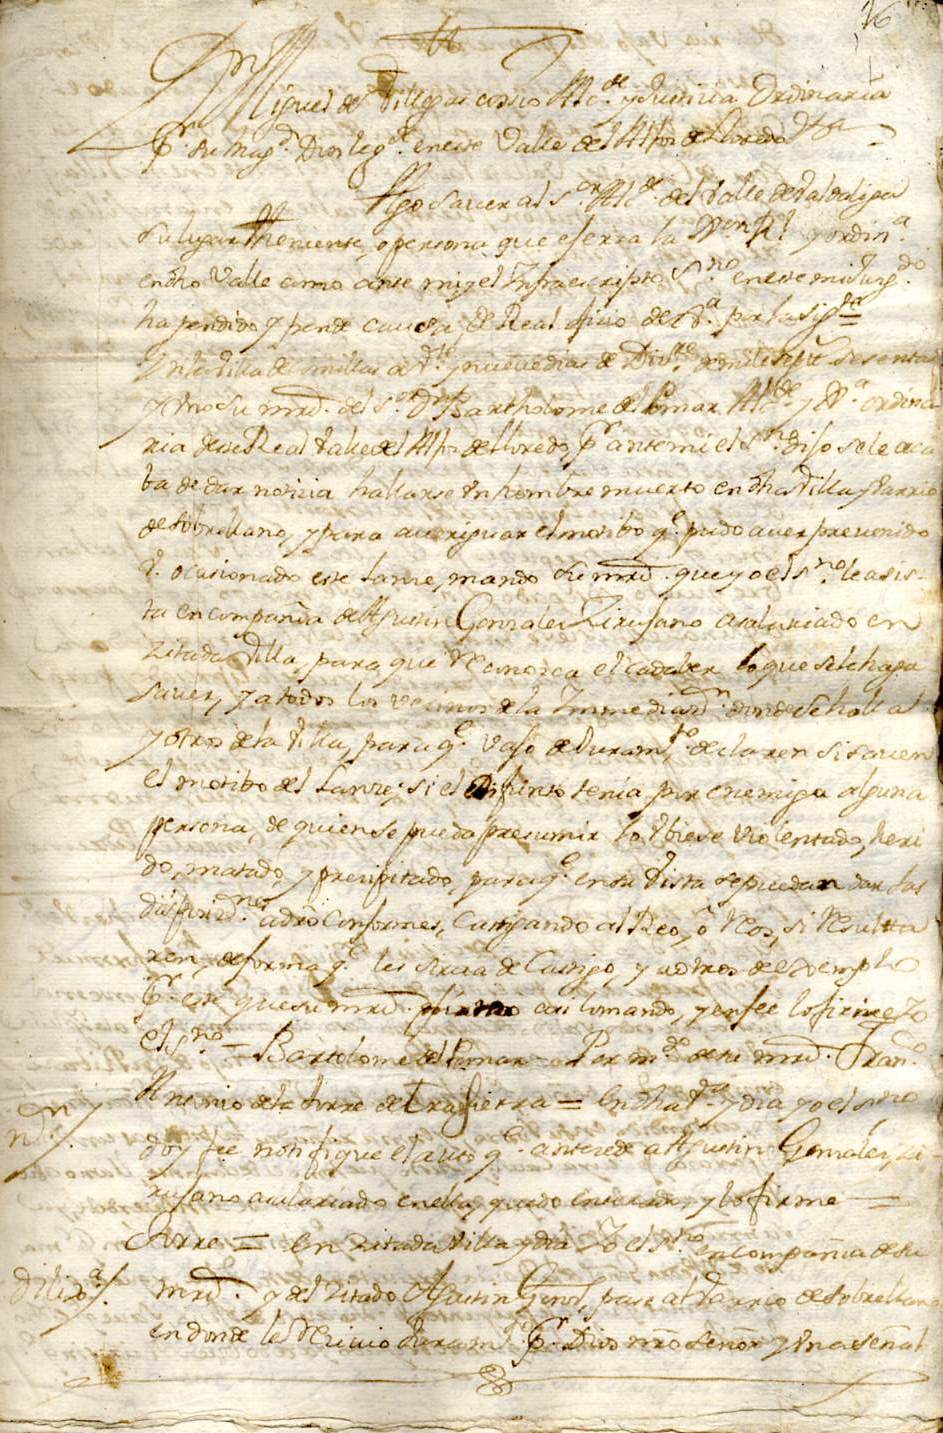 16
Dn Miguel de Villegas como Alc.de y Justicia Ordinaria
Pr. su Mag.d Dios le g.e en este Valle del Alfoz de Lloredo
Hago saver al s.or Alc.de del Valle de Valdaliga
su lugar theniente, o persona que exerza la R.l y ordin.a
en dho Valle como ante mi y el Infraescripto s.no en este mi Juzg.do
ha pendido y pende causa de Real oficio de Just.a por la sig.te
En la Villa de Comillas a y nueve dias de de mil sett.s sesenta
y su mrd. del s.or Dn Bartholome del Pomar Alc.de y J.a ordina
ria de este Real Valle del Alfoz de Lloredo Pr. ante mi el s.no dijo se le aca
ba de dar noticia hallarse un hombre muerto en dha Villa y Varrio
de Sobrellano, y para averiguar el motibo q.e pudo aver prevenido
u ocasionado este lanze, mando su mrd. que yo el s.no le asis-
ta en compania de Agustin Gonzalez Zirujano asalariado en
Zitada Villa, para que reconozca el cadaber lo que se le haga
saver, y a todos los vecinos de la Inmediaz.n donde se hallal
y otros de la Villa, para q.e vajo de Juram.to declaren si saven
el motibo del lanze; si el Difunto tenia por enemiga alguna
persona, de quien se pueda presumir lo ubiese violentado, heri
do, matado, y precipitado, para q.e en su vista se puedan dar las
disposiz.nes a dro Conformes, Castigando al Reo, o Reos, si resulta
ren, de forma q.e les sirva de Castigo, y a otros de exemplo
Pr. este que su mrd. firmo asi lo mando, y en fee lo firme Yo
el s.no = Bartolome del Pomar = Por m.do de su mrd. Fran.co
Antonio de la Torre de Trasierra = En dha V.a y dia yo el s.no
Nn
doy fee notifique el auto q.e antecede a Agustin Gonzalez, zi-
rujano asalariado en ella, quedo enterado, y lo firme =
Torre = En Zitada Villa y dia Yo el s.no en compania de su
Dilix.a
mrd. y del Zitado Agustin Gonz.z, pase al Varrio de Sobrellano
en donde le recivio Juram.to Pr. Dios nro señor y una señal